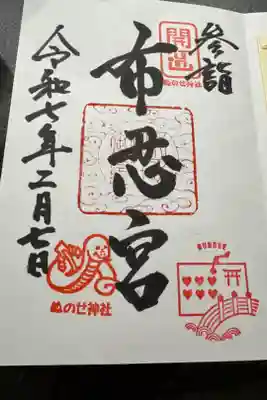 参詣
開運
ぬのせ神社
布忍宮
令和七年二月七日
ぬのせ神社